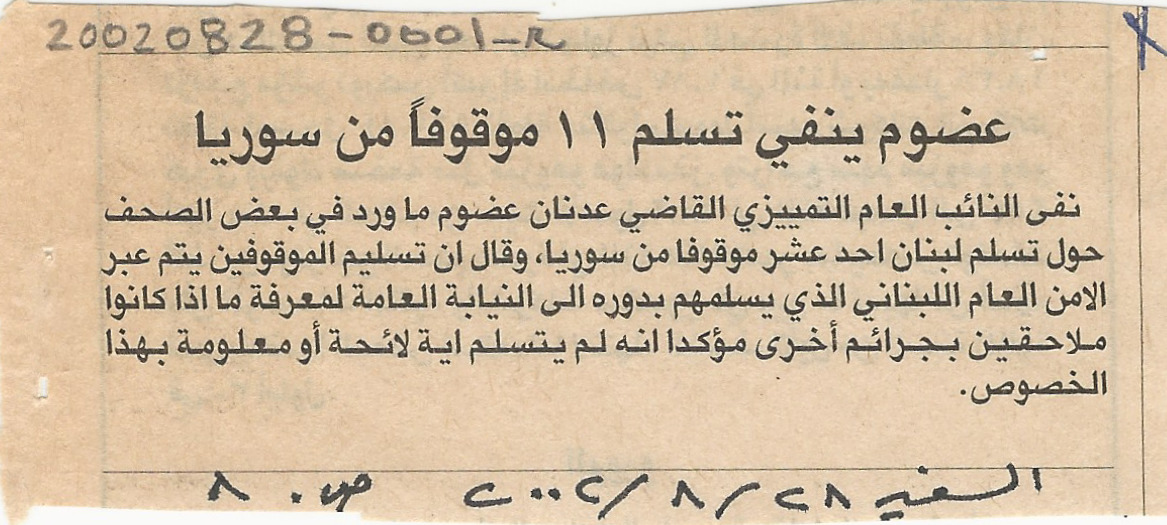 20020828-0001-R
X
عضوم ينفي تسلم ١١ موقوفاً من سوريا
نفى النائب العام التمييزي القاضي عدنان عضوم ما ورد في بعض الصحف
حول تسلم لبنان احد عشر موقوفا من سوريا، وقال ان تسليم الموقوفين يتم عبر
الامن العام اللبناني الذي يسلمهم بدوره الى النيابة العامة لمعرفة ما اذا كانوا
ملاحقين بجرائم أخرى مؤكدا انه لم يتسلم اية لائحة أو معلومة بهذا
الخصوص.
السفير ٢٨/٨/٢٠٠٢ ص. ٨